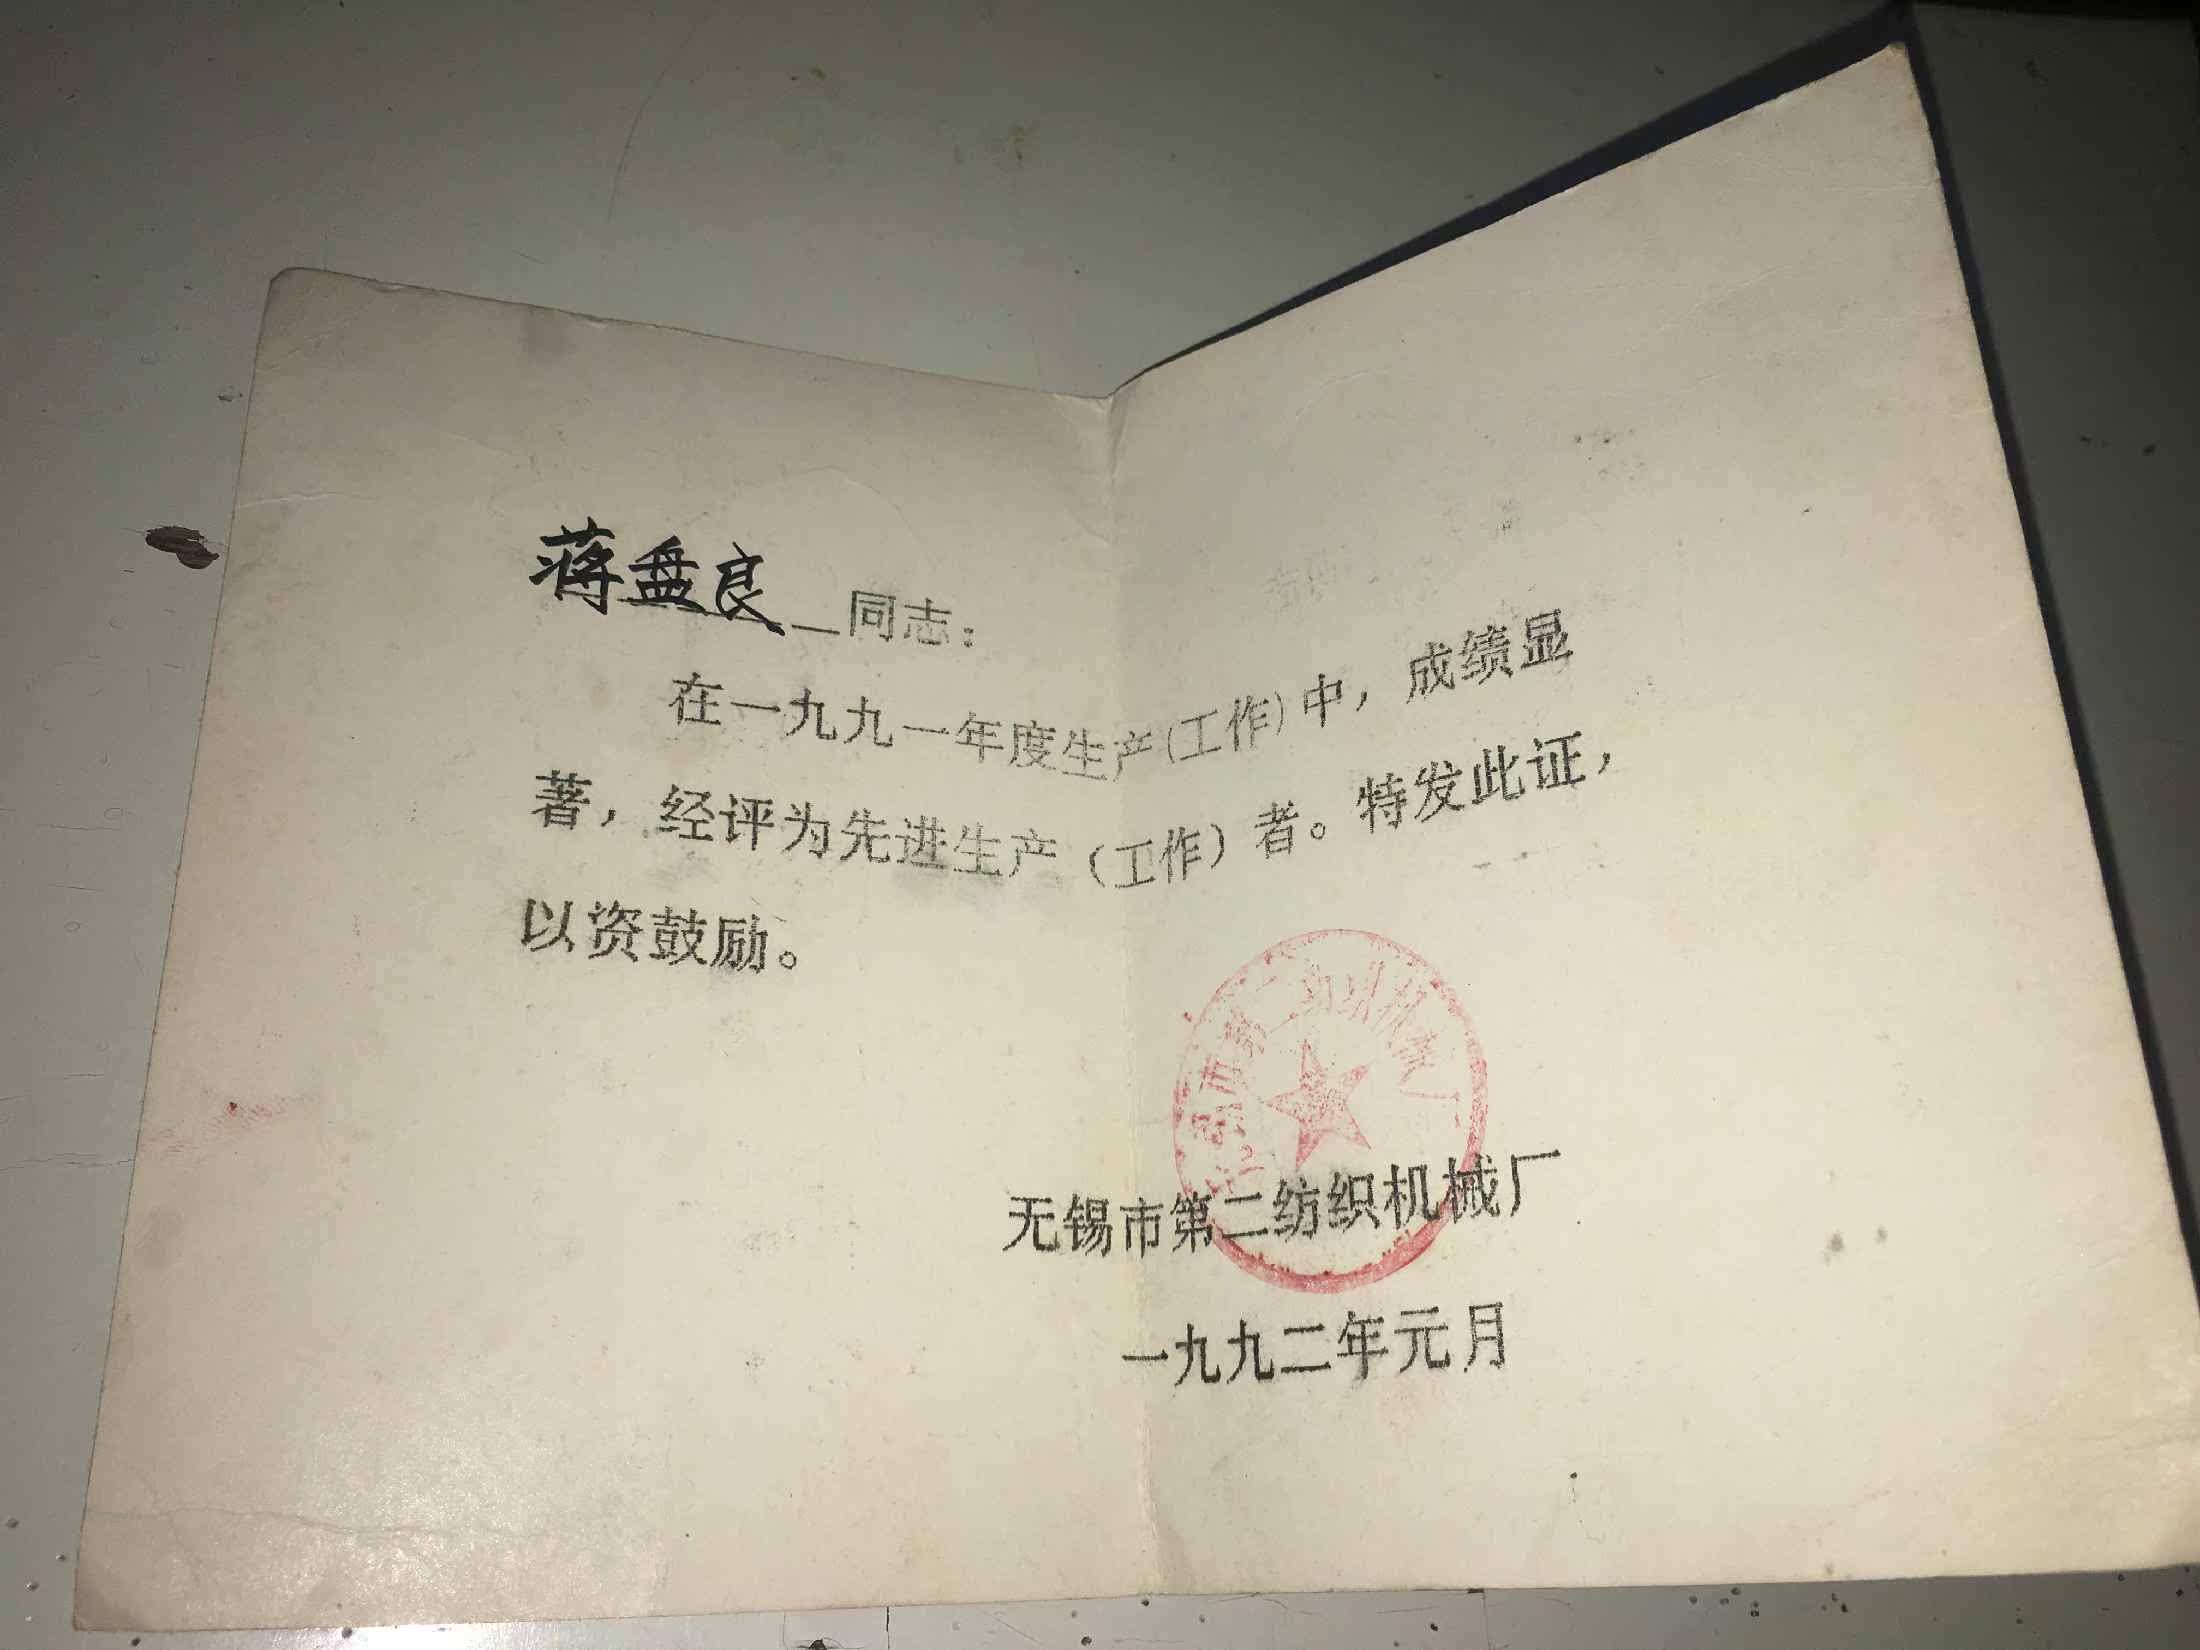 蒋盘良 同志：
在一九九一年度生产(工作)中，成绩显
著，经评为先进生产（工作）者。特发此证，
以资鼓励。
无锡市第二纺织机械厂
无锡市第二纺织机械厂
一九九二年元月